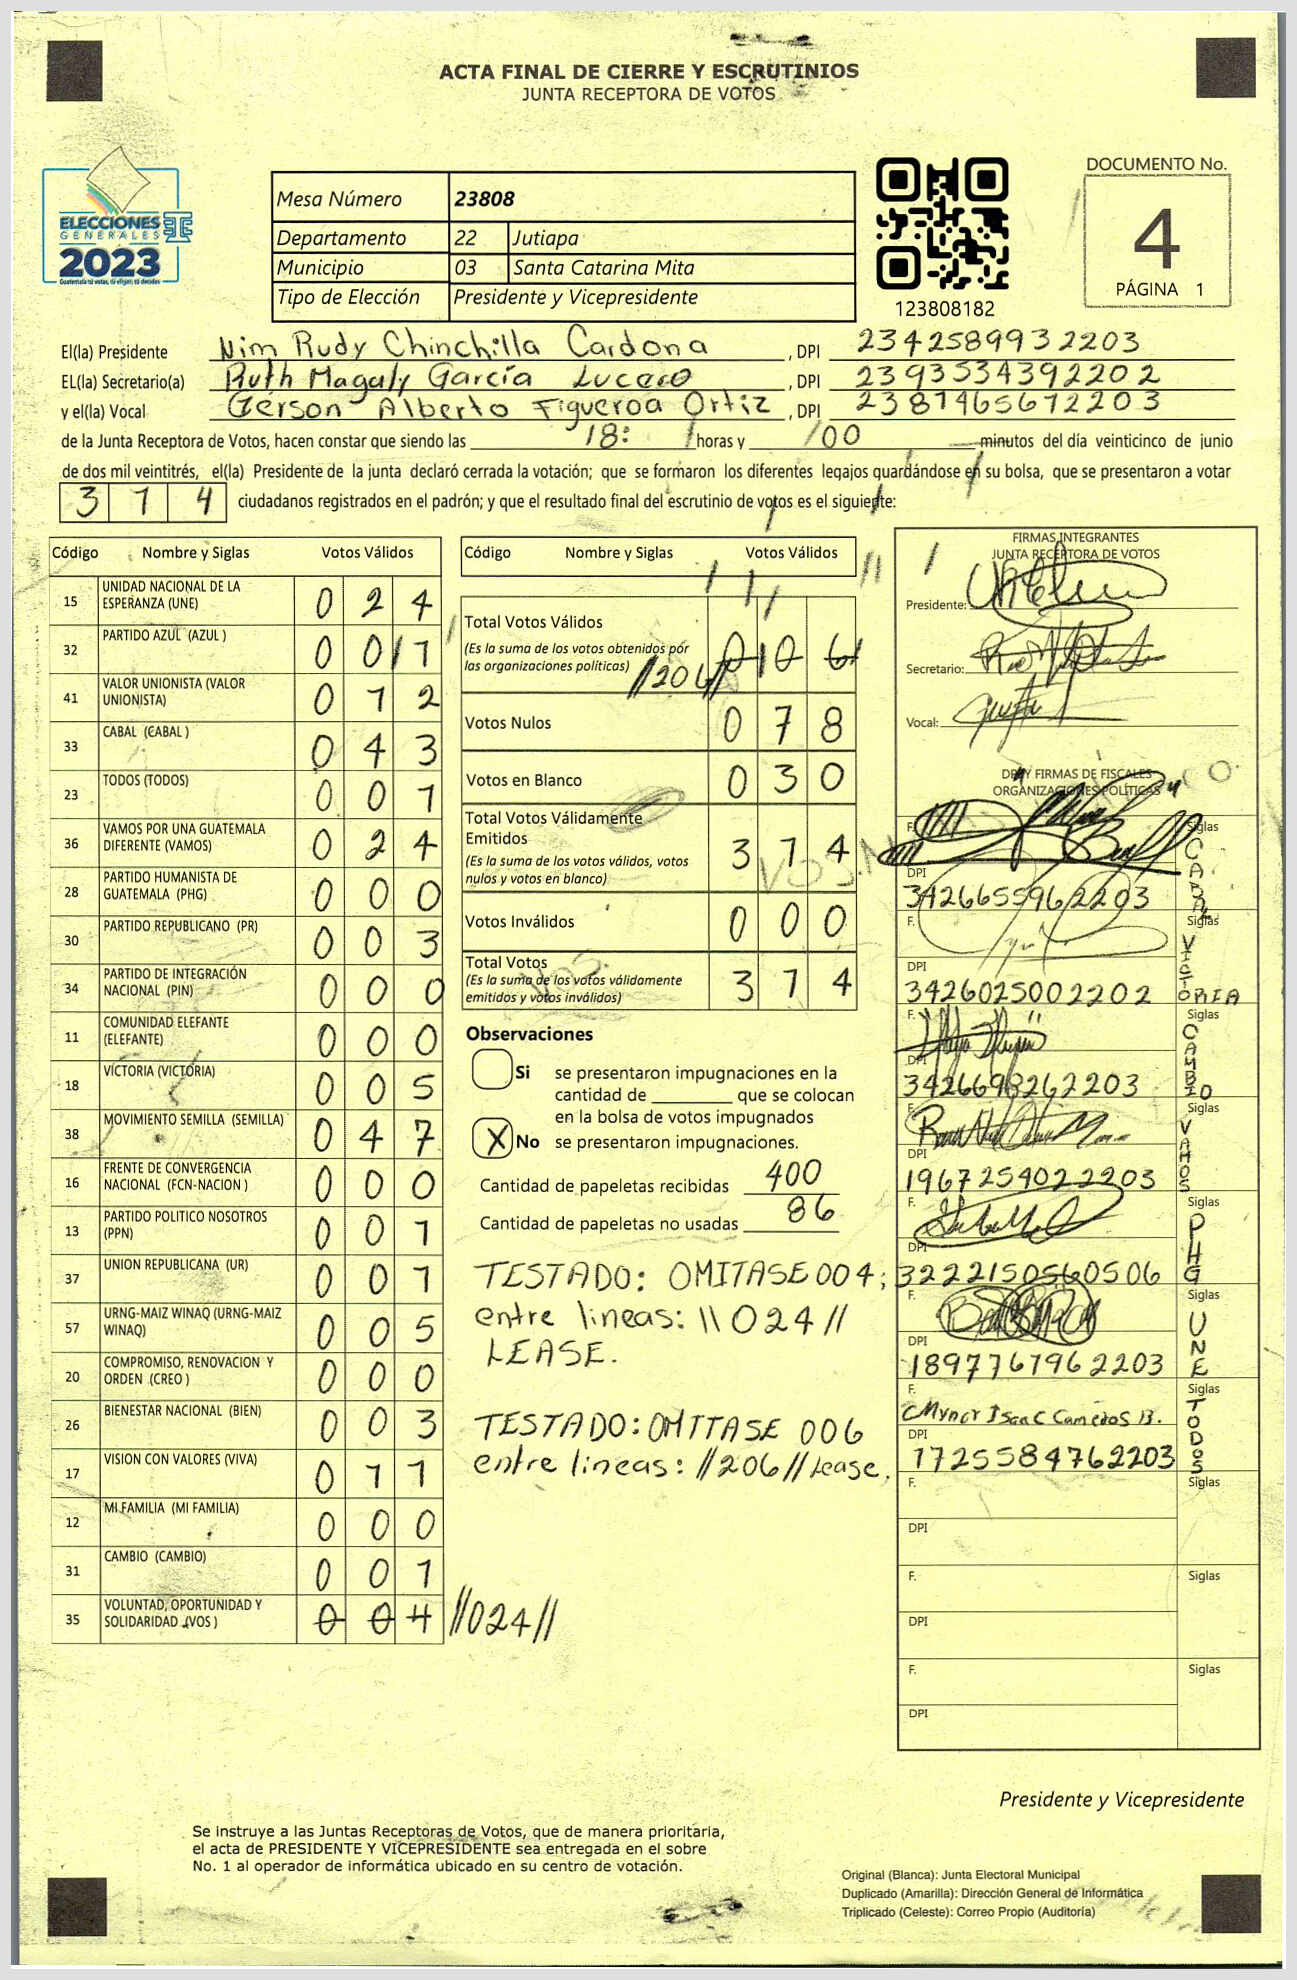 ACTA FINAL DE CIERRE Y ESCRUTINIOS
JUNTA RECEPTORA DE VOTOS
ELECCIONES
GENERALES
2023
Guatemala tú votas, tú eliges, tú decides
Mesa Número 23808
Departamento 22 Jutiapa
Municipio 03 Santa Catarina Mita
Tipo de Elección Presidente y Vicepresidente
123808182
DOCUMENTO No.
4
PÁGINA 1
El(la) Presidente Nim Rudy Chinchilla Cardona , DPI 2342589932203
EL(la) Secretario(a) Ruth Magaly García Lucero , DPI 2393534392202
y el(la) Vocal Gerson Alberto Figueroa Ortiz , DPI 2387465672203
de la Junta Receptora de Votos, hacen constar que siendo las 18: horas y /00 minutos del día veinticinco de junio
de dos mil veintitrés, el(la) Presidente de la junta declaró cerrada la votación; que se formaron los diferentes legajos guardándose en su bolsa, que se presentaron a votar
3 1 4 ciudadanos registrados en el padrón; y que el resultado final del escrutinio de votos es el siguiente:
Código Nombre y Siglas Votos Válidos
15 UNIDAD NACIONAL DE LA ESPERANZA (UNE) 0 2 4
32 PARTIDO AZUL (AZUL ) 0 0 1
41 VALOR UNIONISTA (VALOR UNIONISTA) 0 1 2
33 CABAL (CABAL ) 0 4 3
23 TODOS (TODOS) 0 0 1
36 VAMOS POR UNA GUATEMALA DIFERENTE (VAMOS) 0 2 4
28 PARTIDO HUMANISTA DE GUATEMALA (PHG) 0 0 0
30 PARTIDO REPUBLICANO (PR) 0 0 3
34 PARTIDO DE INTEGRACIÓN NACIONAL (PIN) 0 0 0
11 COMUNIDAD ELEFANTE (ELEFANTE) 0 0 0
18 VICTORIA (VICTORIA) 0 0 5
38 MOVIMIENTO SEMILLA (SEMILLA) 0 4 7
16 FRENTE DE CONVERGENCIA NACIONAL (FCN-NACION ) 0 0 0
13 PARTIDO POLITICO NOSOTROS (PPN) 0 0 1
37 UNION REPUBLICANA (UR) 0 0 1
57 URNG-MAIZ WINAQ (URNG-MAIZ WINAQ) 0 0 5
20 COMPROMISO, RENOVACION Y ORDEN (CREO ) 0 0 0
26 BIENESTAR NACIONAL (BIEN) 0 0 3
17 VISION CON VALORES (VIVA) 0 1 1
12 MI FAMILIA (MI FAMILIA) 0 0 0
31 CAMBIO (CAMBIO) 0 0 1
35 VOLUNTAD, OPORTUNIDAD Y SOLIDARIDAD (VOS ) 0 0 4 //024//
Código Nombre y Siglas Votos Válidos
Total Votos Válidos
(Es la suma de los votos obtenidos por
las organizaciones políticas) //206// 0 0 6
Votos Nulos 0 7 8
Votos en Blanco 0 3 0
Total Votos Válidamente
Emitidos
(Es la suma de los votos válidos, votos
nulos y votos en blanco) 3 1 4
Votos Inválidos 0 0 0
Total Votos
(Es la suma de los votos válidamente
emitidos y votos inválidos) 3 1 4
Observaciones
Si se presentaron impugnaciones en la
cantidad de ________ que se colocan
en la bolsa de votos impugnados
X No se presentaron impugnaciones.
Cantidad de papeletas recibidas 400
Cantidad de papeletas no usadas 86
TESTADO: OMITASE 004;
entre lineas: \\024//
LEASE.
TESTADO: OMITASE 006
entre lineas: //206// Lease.
FIRMAS INTEGRANTES
JUNTA RECEPTORA DE VOTOS
Presidente:
Secretario:
Vocal:
DPI Y FIRMAS DE FISCALES
ORGANIZACIONES POLÍTICAS
F. Siglas CABAL
DPI 3426655962203
F. Siglas VICTORIA
DPI 3426025002202
F. Siglas CAMBIO
DPI 3426698262203
F. Siglas VAMOS
DPI 1967254022203
F. Siglas PHG
DPI 3222150560506
F. Siglas UNE
DPI 1897767962203
F. Siglas TODOS
DPI 1725584762203
F. Siglas
DPI
F. Siglas
DPI
F. Siglas
DPI
Presidente y Vicepresidente
Se instruye a las Juntas Receptoras de Votos, que de manera prioritaria,
el acta de PRESIDENTE Y VICEPRESIDENTE sea entregada en el sobre
No. 1 al operador de informática ubicado en su centro de votación.
Original (Blanca): Junta Electoral Municipal
Duplicado (Amarilla): Dirección General de Informática
Triplicado (Celeste): Correo Propio (Auditoría)